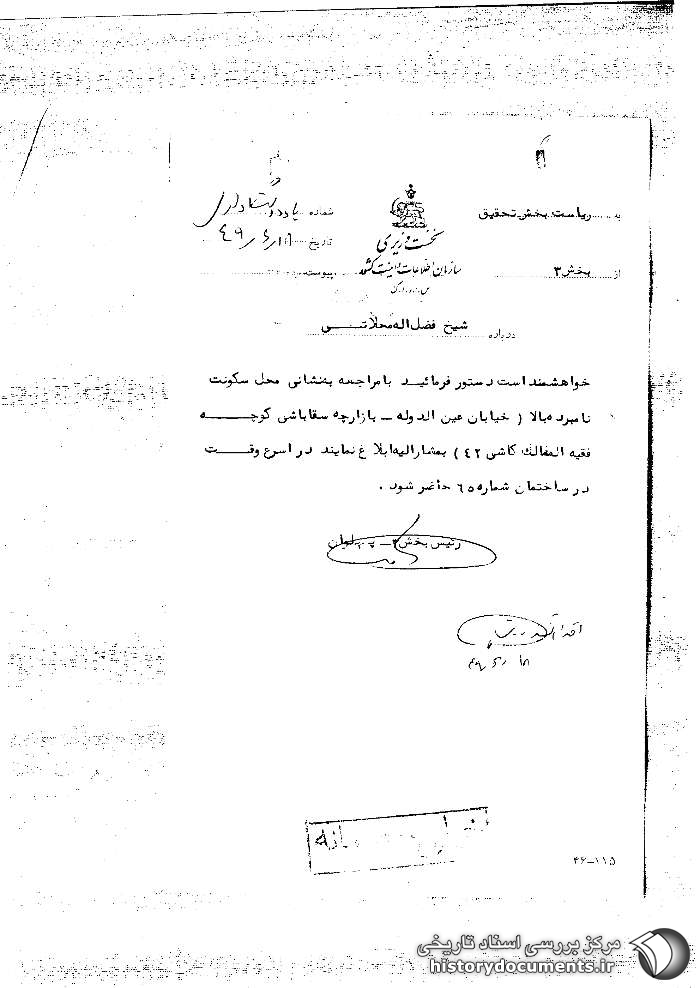 به ریاست بخش تحقیق
از بخش ۳
نخست وزیری
سازمان اطلاعات و امنیت کشور
س.ا.و.ا.ک
شماره
تاریخ ۴۹/۶/۱۸
پیوست
درباره شیخ فضل اله محلاتـــی
خواهشمند است دستور فرمائید با مراجعه بنشانی محل سکونت
نامبرده بالا ( خیابان عین الدوله ــ بازارچه سقاباشی کوچـــه
فقیه الممالک کاشی ۴۲ ) بمشارالیه ابلاغ نمایند در اسرع وقــت
در ساختمان شماره ۶۵ حاضر شود .
رئیس بخش ۳ ــ پهلوان
۴۹/۶/۱۸
۴۶-۱۱۵
مرکز بررسی اسناد تاریخی
historydocuments.ir